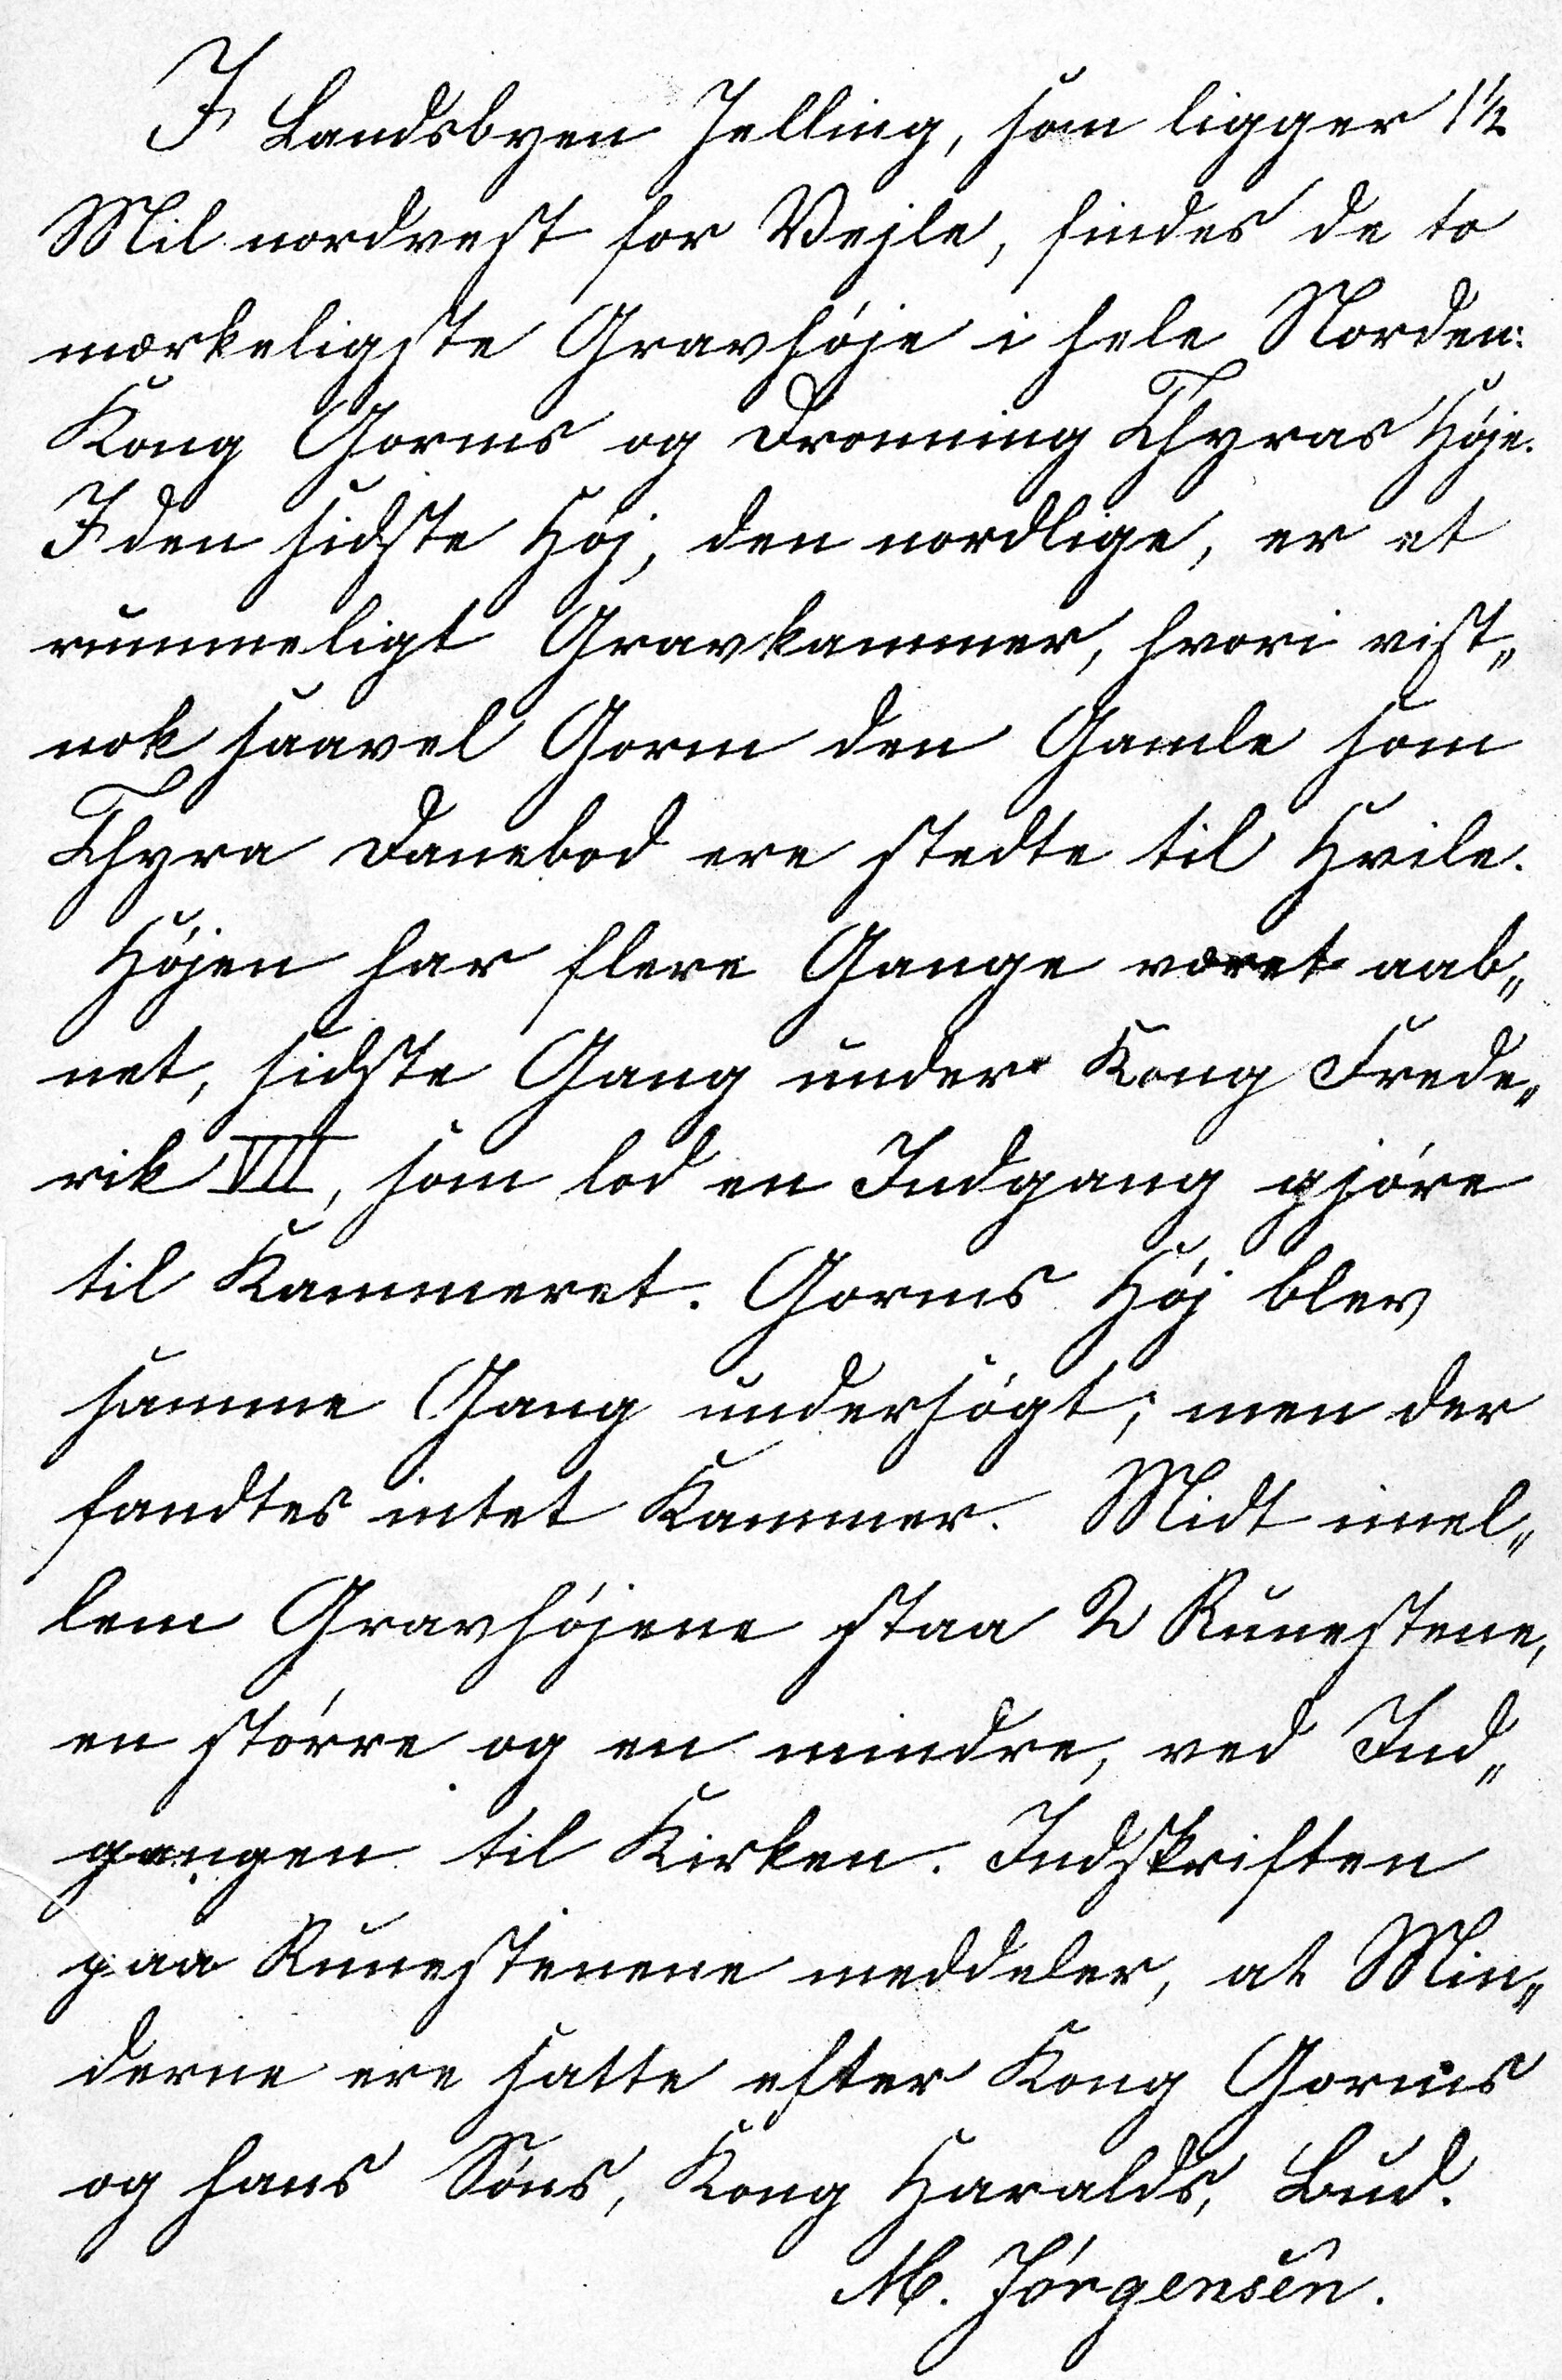 I Landsbyen Jelling, som ligger 1½
Mil nordvest for Vejle, findes de to
mærkeligste Gravhóje i hele Norden:
Kong Gorms og Dronning Thyras Hóje.
I den sidste Hój, den nordlige, er et
rummeligt Gravkammer, hvori vist„
nok saavel Gorm den Gamle som
Thyra Danebod ere stedte til Hvile.
Hójen har flere Gange været aab„
net, sidste Gang under Kong Frede„
rik VII, som lod en Indgang gjóre
til Kammeret. Gorms Hój blev
samme Gang undersógt; men der
fandtes intet Kammer. Midt imel„
lem Gravhójene staa 2 Runestene,
en stórre og en mindre, ved Ind„
gangen til Kirken. Indskriften
paa Runestenene meddeler, at Min„
derne ere satte efter Kong Gorms
og hans Sóns, Kong Haralds, Bud.
M. Jórgensen.